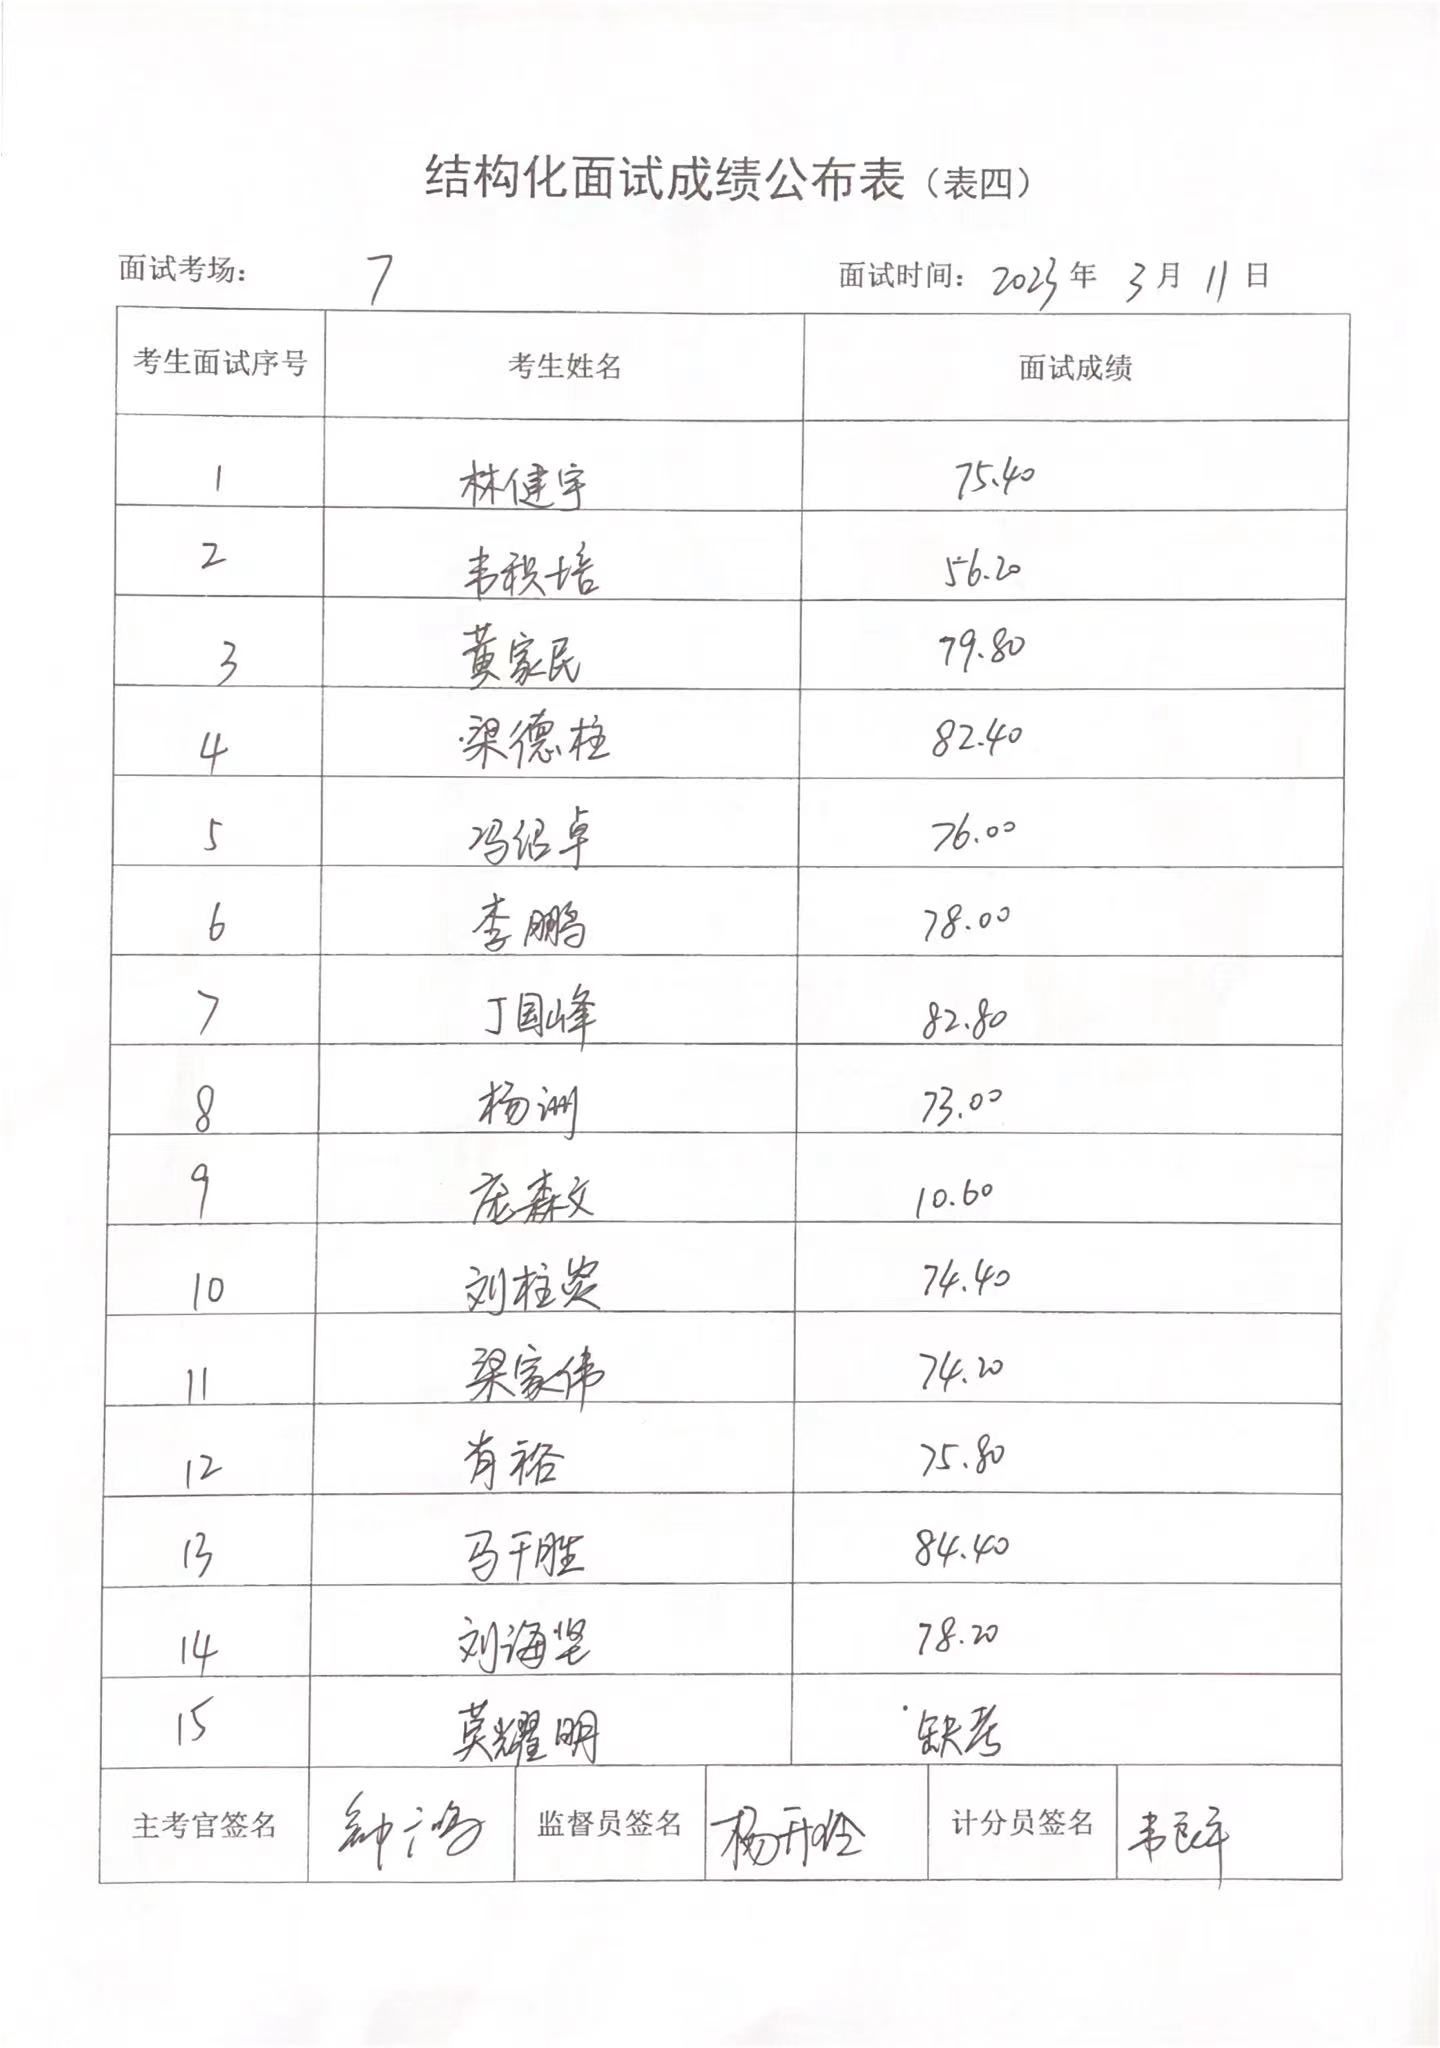 结构化面试成绩公布表（表四）
面试考场： 7 面试时间： 2023 年 3 月 11 日
考生面试序号 考生姓名 面试成绩
1 林健宇 75.40
2 韦积培 56.20
3 黄家民 79.80
4 梁德柱 82.40
5 冯绍卓 76.00
6 李鹏 78.00
7 丁国峰 82.80
8 杨洲 73.00
9 庞森文 10.60
10 刘柱炎 74.40
11 梁家伟 74.20
12 肖裕 75.80
13 马干胜 84.40
14 刘海坚 78.20
15 莫耀明 缺考
主考官签名 监督员签名 计分员签名